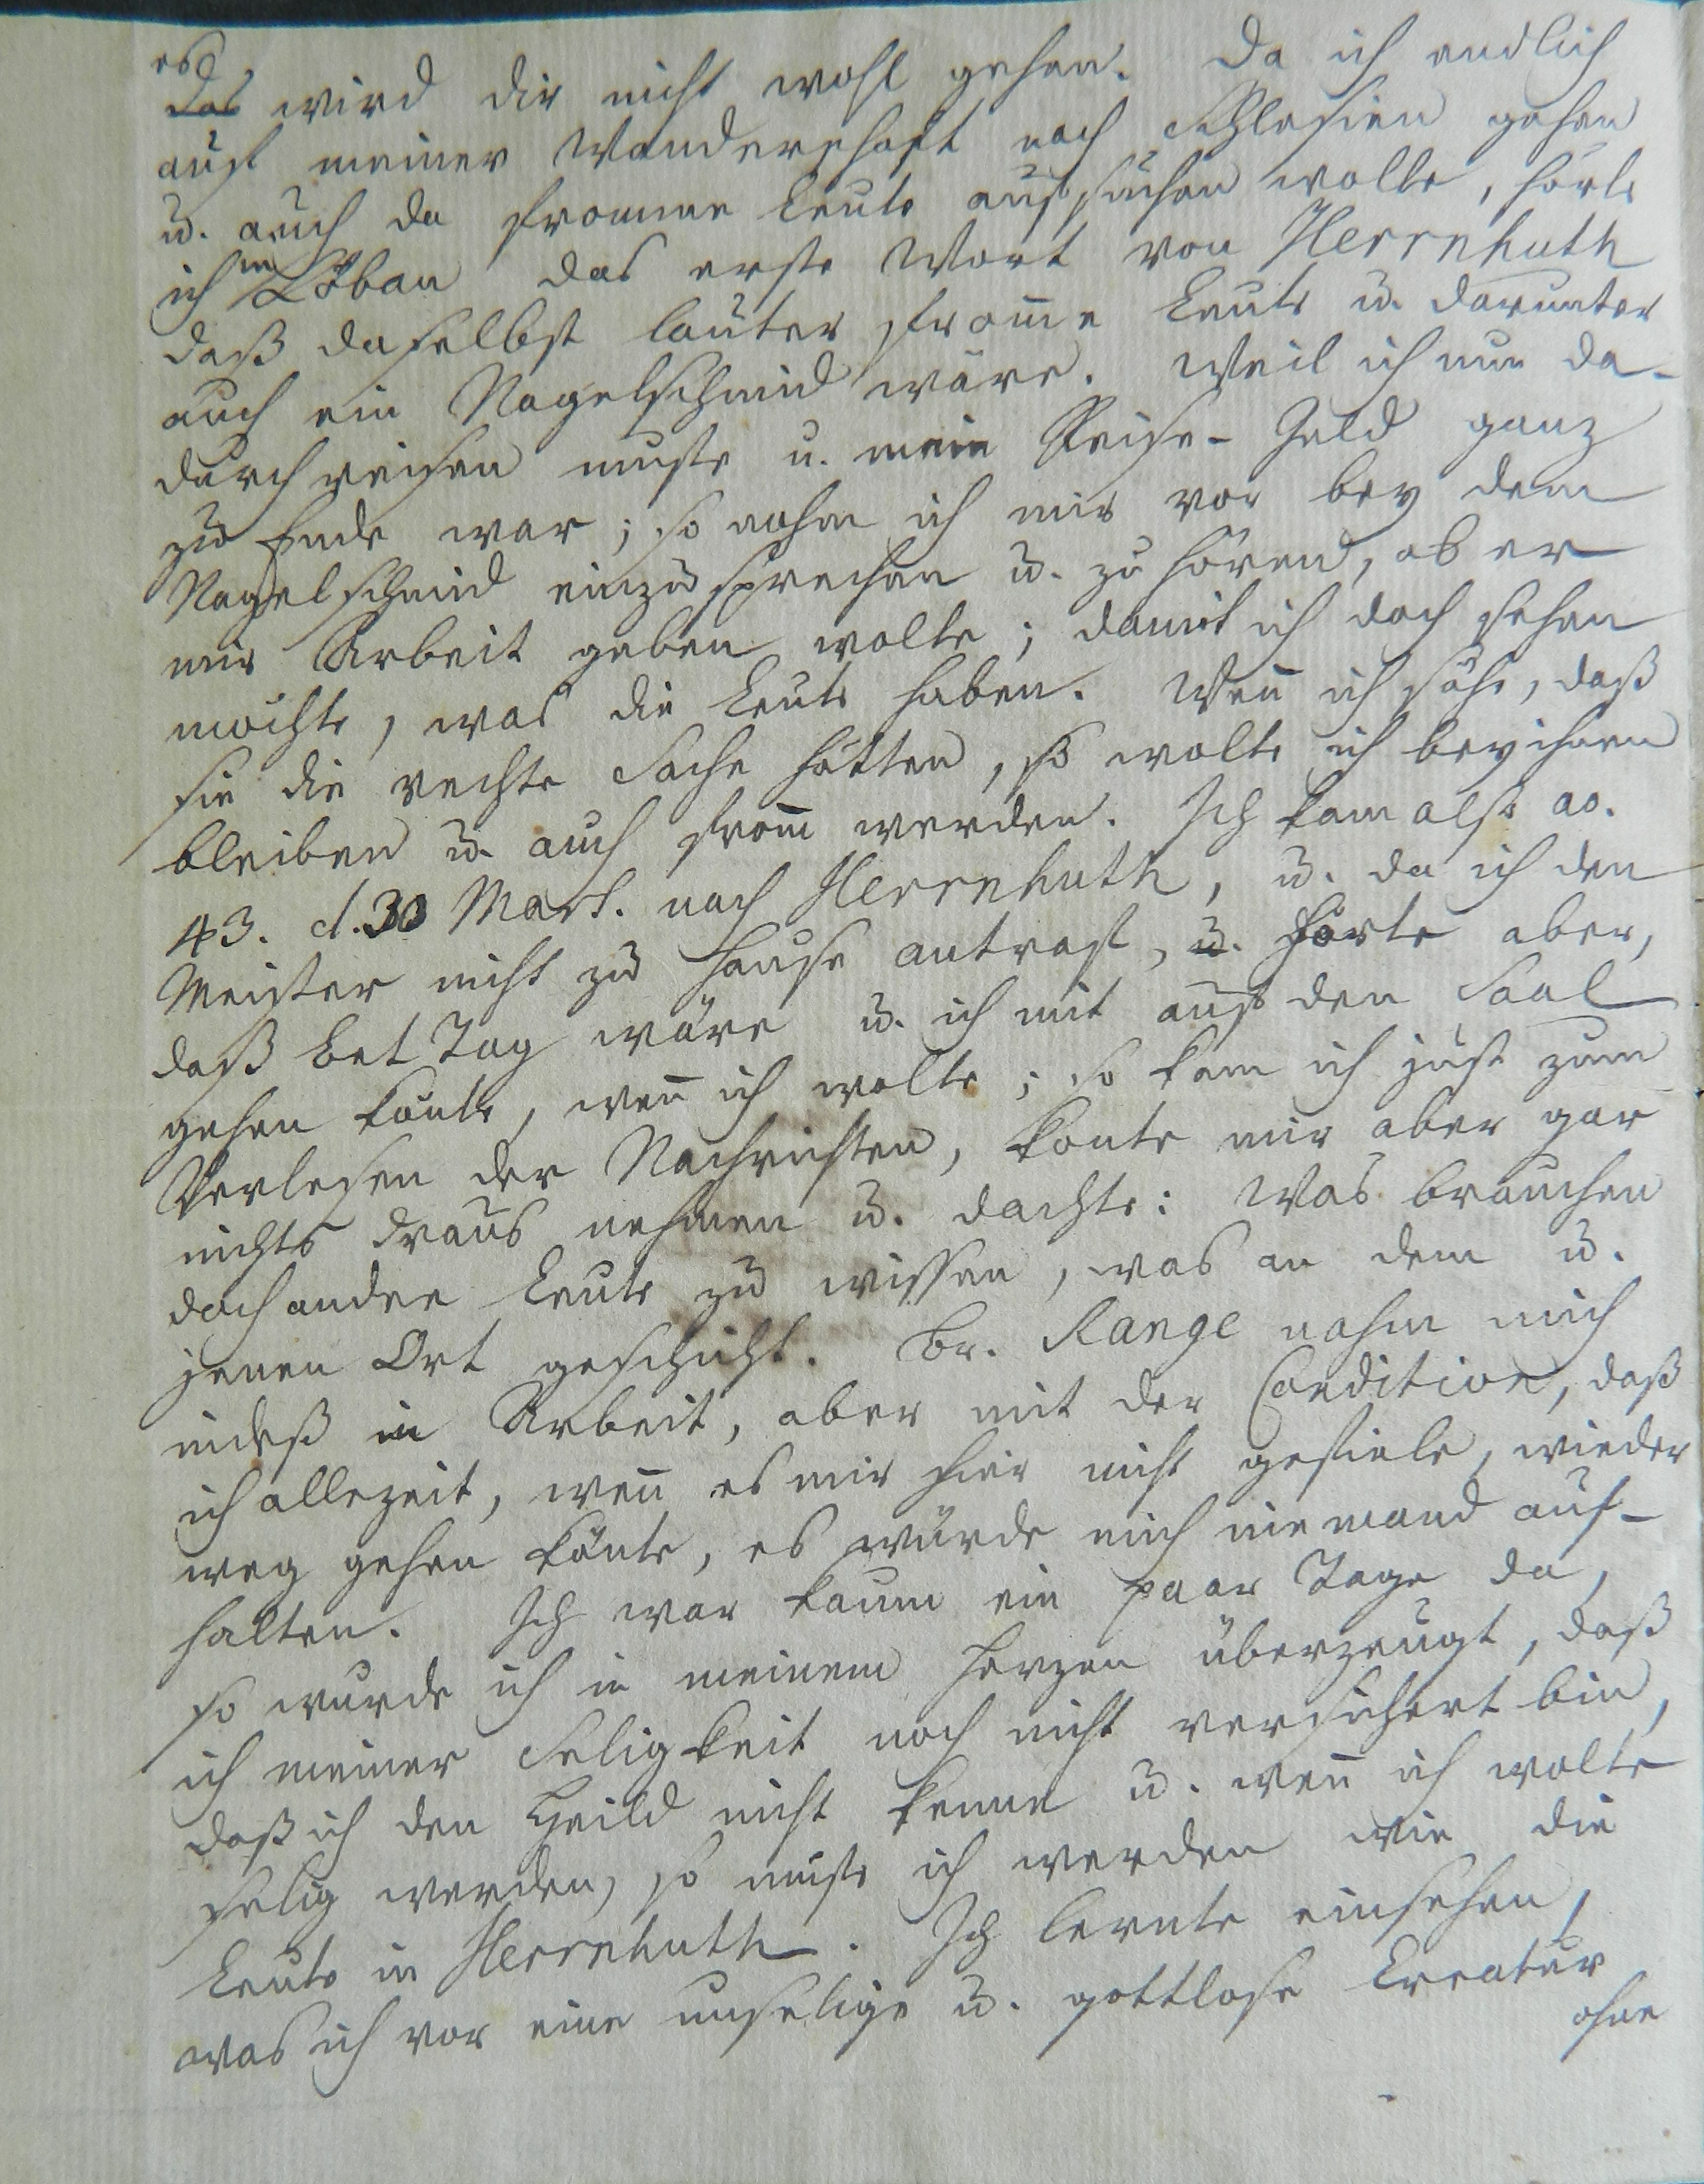 es
das wird dir nicht wohl gehen. Da ich endlich
auf meiner Wanderschaft nach Schlesien gehen
u. auch da fromme Leute aufsuchen wolte, hörte
ich in Löbau das erste Wort von Herrnhuth
daß daselbst lauter from̅e Leute u. darunter
auch ein Nagelschmid wäre. Weil ich nun da-
durch reisen muste u. mein Reise-Geld ganz
zu Ende war; so nahm ich mir vor bey dem
Nagelschmid einzusprechen u. zu hören, ob er
mir Arbeit geben wolte; damit ich doch sehen
möchte, was die Leute haben. Wen̅ ich sähe, daß
sie die rechte Sache hätten, so wolte ich bey ihnen
bleiben u. auch from̅ werden. Ich kam also ao.
43. d. 30 Mart. nach Herrnhuth, u. da ich den
Meister nicht zu Hause antraf, u. hörte aber,
daß Bet Tag wäre u. ich mit auf den Saal
gehen könte, wen̅ ich wolte; so kam ich just zum
Verlesen der Nachrichten, konte mir aber gar
nichts draus nehmen u. dachte: Was brauchen
doch andre Leute zu wissen, was an dem u.
jenen Ort geschicht. Br. Range nahm mich
indeß in Arbeit, aber mit der Condition, daß
ich allezeit, wen̅ es mir hier nicht gefiele, wieder
weg gehen könte, es würde mich niemand auf-
halten. Ich war kaum ein paar Tage da,
so wurde ich in meinem Herzen überzeugt, daß
ich meiner Seligkeit noch nicht versichert bin,
daß ich den Heild nicht kenne u. wen̅ ich wolte
selig werden, so müste ich werden wie die
Leute in Herrnhuth. Ich lernte einsehen,
was ich vor eine unselige u. gottlose Creatur
ohne